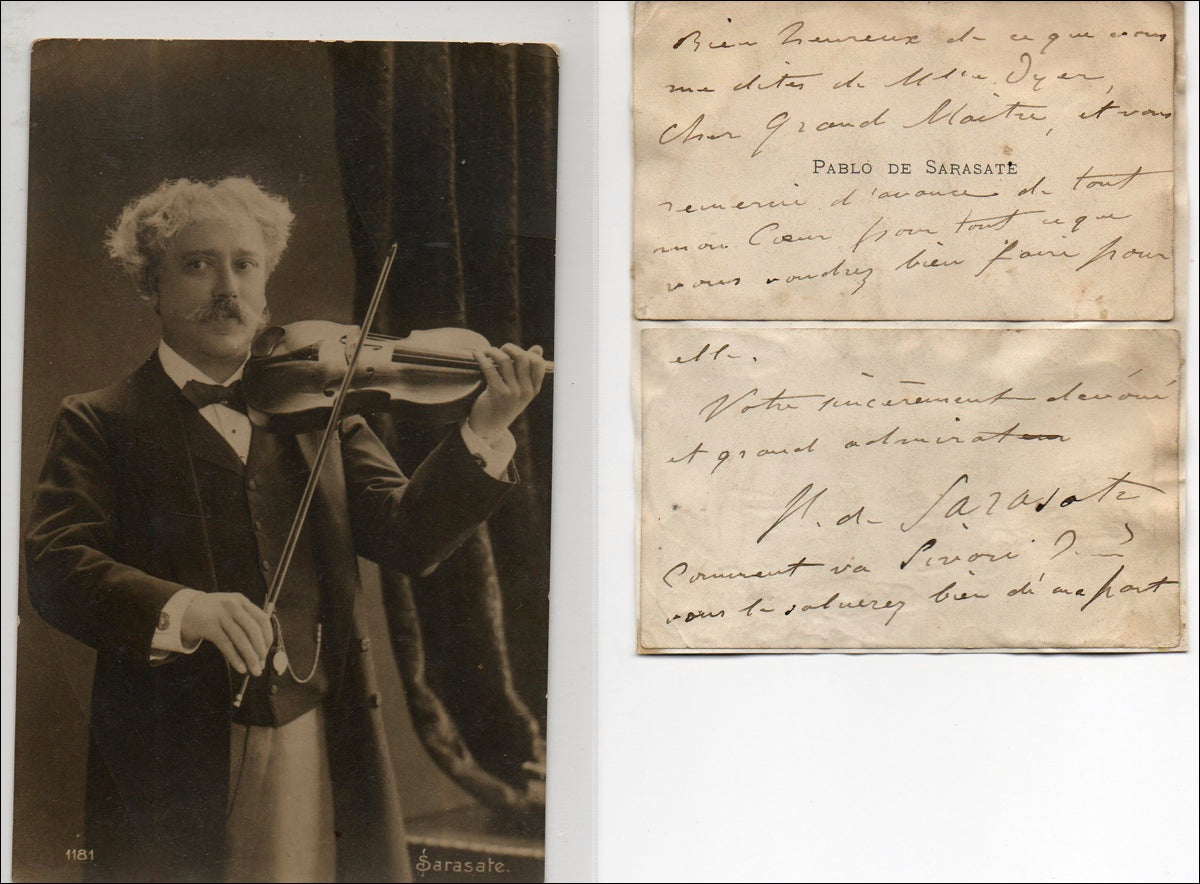 1181
Sarasate.
Bien heureux de ce que vous
me dites de Mlle Dyer,
Cher Grand Maitre, et vous
PABLO DE SARASATE
remercie d'avance de tout
mon Cœur pour tout ce que
vous voudrez bien faire pour
elle.
Votre sincèrement dévoué
et grand admirateur
P. de Sarasate
Comment va Sivori ?
vous le saluerez bien de ma part